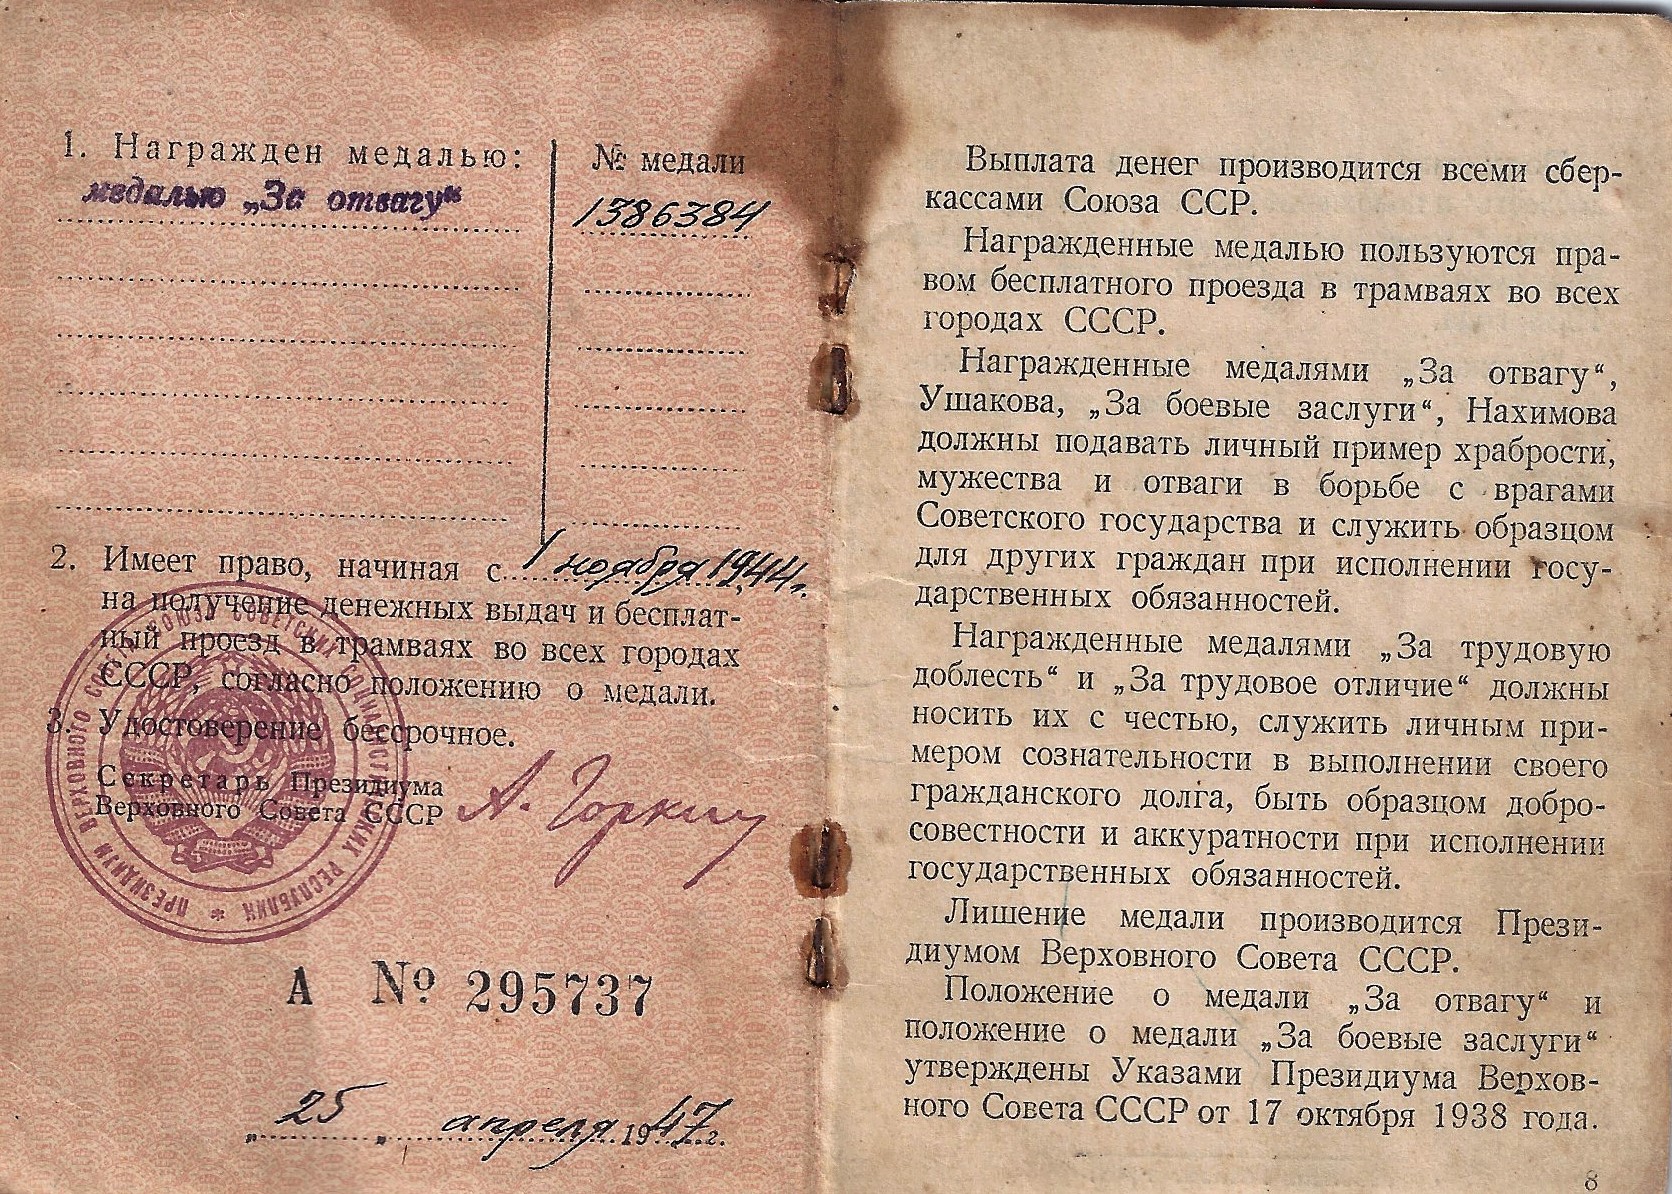 1. Награжден медалью:
№ медали
медалью „За отвагу“
1386384
2. Имеет право, начиная с 1 ноября 1944 г.
на получение денежных выдач и бесплат-
ный проезд в трамваях во всех городах
СССР, согласно положению о медали.
3. Удостоверение бессрочное.
Секретарь Президиума
Верховного Совета СССР
А. Горкин
ПРЕЗИДИУМ ВЕРХОВНОГО СОВЕТА СОЮЗА СОВЕТСКИХ СОЦИАЛИСТИЧЕСКИХ РЕСПУБЛИК *
А № 295737
„25„ апреля 1947 г.
Выплата денег производится всеми сбер-
кассами Союза ССР.
Награжденные медалью пользуются пра-
вом бесплатного проезда в трамваях во всех
городах СССР.
Награжденные медалями „За отвагу“,
Ушакова, „За боевые заслуги“, Нахимова
должны подавать личный пример храбрости,
мужества и отваги в борьбе с врагами
Советского государства и служить образцом
для других граждан при исполнении госу-
дарственных обязанностей.
Награжденные медалями „За трудовую
доблесть“ и „За трудовое отличие“ должны
носить их с честью, служить личным при-
мером сознательности в выполнении своего
гражданского долга, быть образцом добро-
совестности и аккуратности при исполнении
государственных обязанностей.
Лишение медали производится Прези-
диумом Верховного Совета СССР.
Положение о медали „За отвагу“ и
положение о медали „За боевые заслуги“
утверждены Указами Президиума Верхов-
ного Совета СССР от 17 октября 1938 года.
8